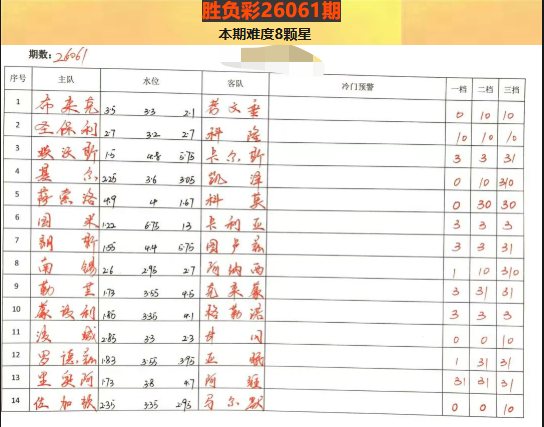 胜负彩26061期
本期难度8颗星
期数: 26061
序号 主队 水位 客队 冷门预警 一档 二档 三档
1 布莱克 3.5 3.3 2.1 考文垂 0 10 10
2 圣保利 2.7 3.2 2.7 科隆 10 10 10
3 埃沃斯 1.5 4.8 5.75 卡尔斯 3 3 31
4 基尔 2.25 3.6 3.05 凯泽 0 10 310
5 萨索洛 4.9 4 1.67 科莫 0 30 30
6 国米 1.22 6.75 13 卡利亚 3 3 3
7 朗斯 1.55 4.4 5.75 图卢兹 3 3 31
8 南锡 2.6 2.95 2.7 阿纳西 1 10 310
9 勒芒 1.73 3.55 4.5 克莱蒙 3 31 31
10 蒙彼利 1.85 3.35 4.1 格勒诺 3 3 3
11 波城 2.85 3.3 2.3 0 0 10
12 罗德兹 1.83 3.55 3.95 亚眠 1 31 31
13 里斯阿 1.73 3.8 4.7 阿 31 31 31
14 佐加顿 2.35 3.35 2.95 马尔默 0 0 10